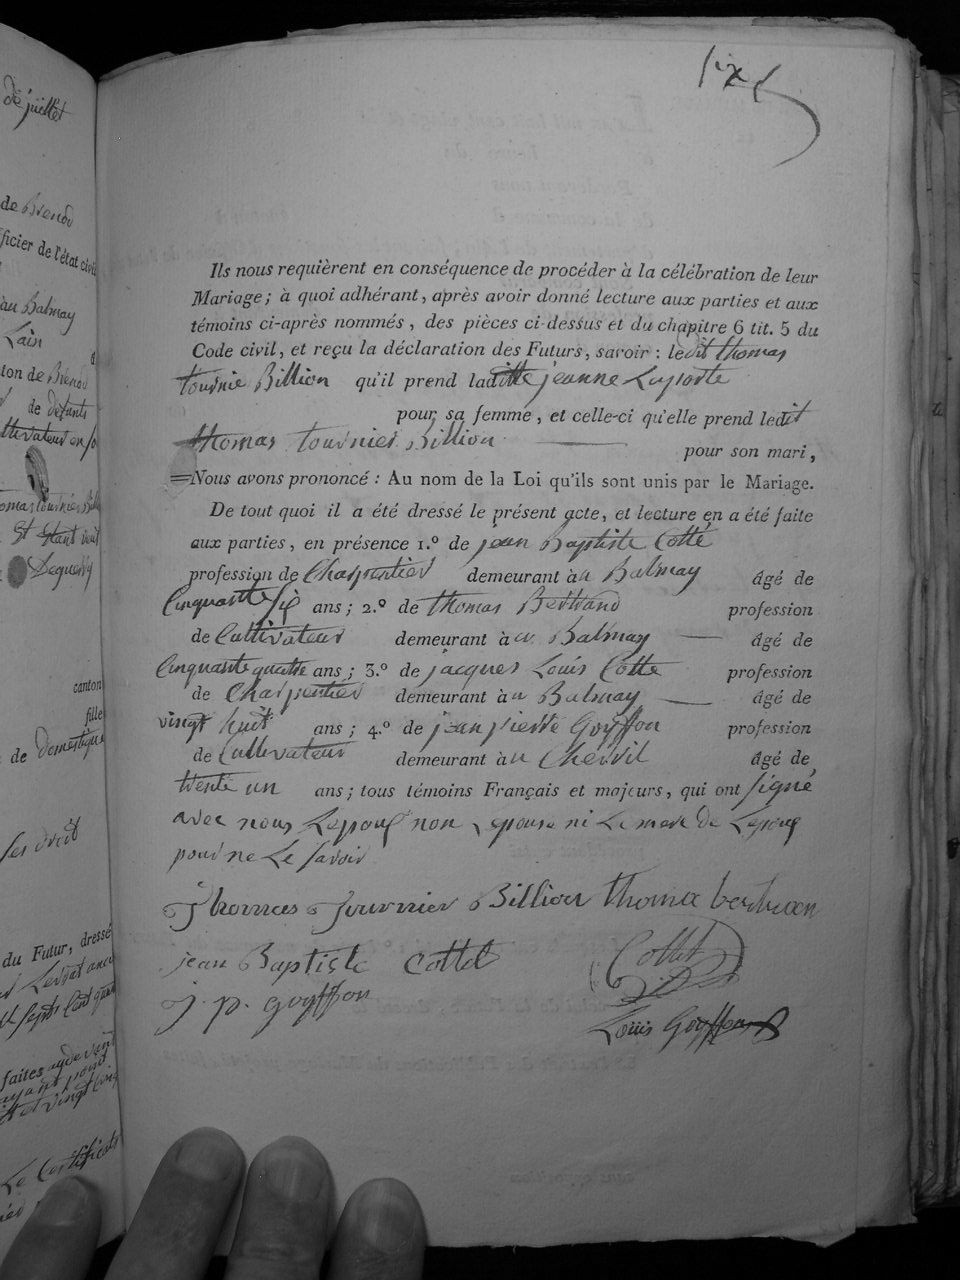 de juillet
de Brenod
officier de l'état civil
au Balmay
Lain
canton de Brenod
de defunts
cultivateur en
Dequerry
canton
fille
de domestique
ses droit
du Futur, dressé
sept Cent quat
faites
et vingt cinq
Le Certificats
six
Ils nous requièrent en conséquence de procéder à la célébration de leur
Mariage; à quoi adhérant, après avoir donné lecture aux parties et aux
témoins ci-après nommés, des pièces ci-dessus et du chapitre 6 tit. 5 du
Code civil, et reçu la déclaration des Futurs, savoir : ledit thomas
tournie Billion qu'il prend laditte jeanne Laporte
pour sa femme, et celle-ci qu'elle prend ledit
thomas tournier Billion
pour son mari,
=Nous avons prononcé : Au nom de la Loi qu'ils sont unis par le Mariage.
De tout quoi il a été dressé le présent acte, et lecture en a été faite
aux parties, en présence 1.º de jean Baptiste Cotté
profession de Charpentier demeurant à u Balmay âgé de
Cinquante six ans; 2.º de thomas Bertrand profession
de Cultivateur demeurant à u Balmay — âgé de
Cinquante quatre ans; 3.º de jacques Louis Cotte profession
de Charpentier demeurant à u Balmay — âgé de
vingt huit ans; 4.º de jean pierre Goyffon profession
de Cultivateur demeurant à u Chevril âgé de
trente un ans; tous témoins Français et majeurs, qui ont signé
avec nous Lepoux non Lepouse ni Le mere de Lepoux
pour ne Le savoir
Thomas Tournier Billion thoma bertran
jean Baptiste Cottet Cottet
j. p. goyffon
Louis Goyffon